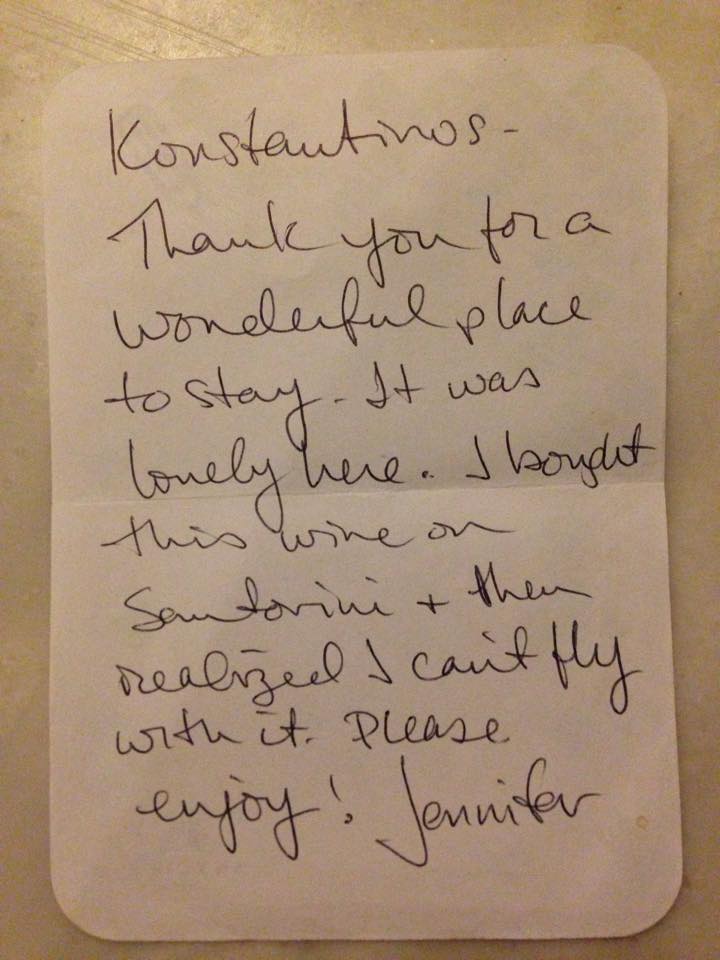 Konstantinos-
Thank you for a
wonderful place
to stay. It was
lovely here. I bought
this wine on
Santorini + then
realized I can't fly
with it. Please
enjoy! Jennifer